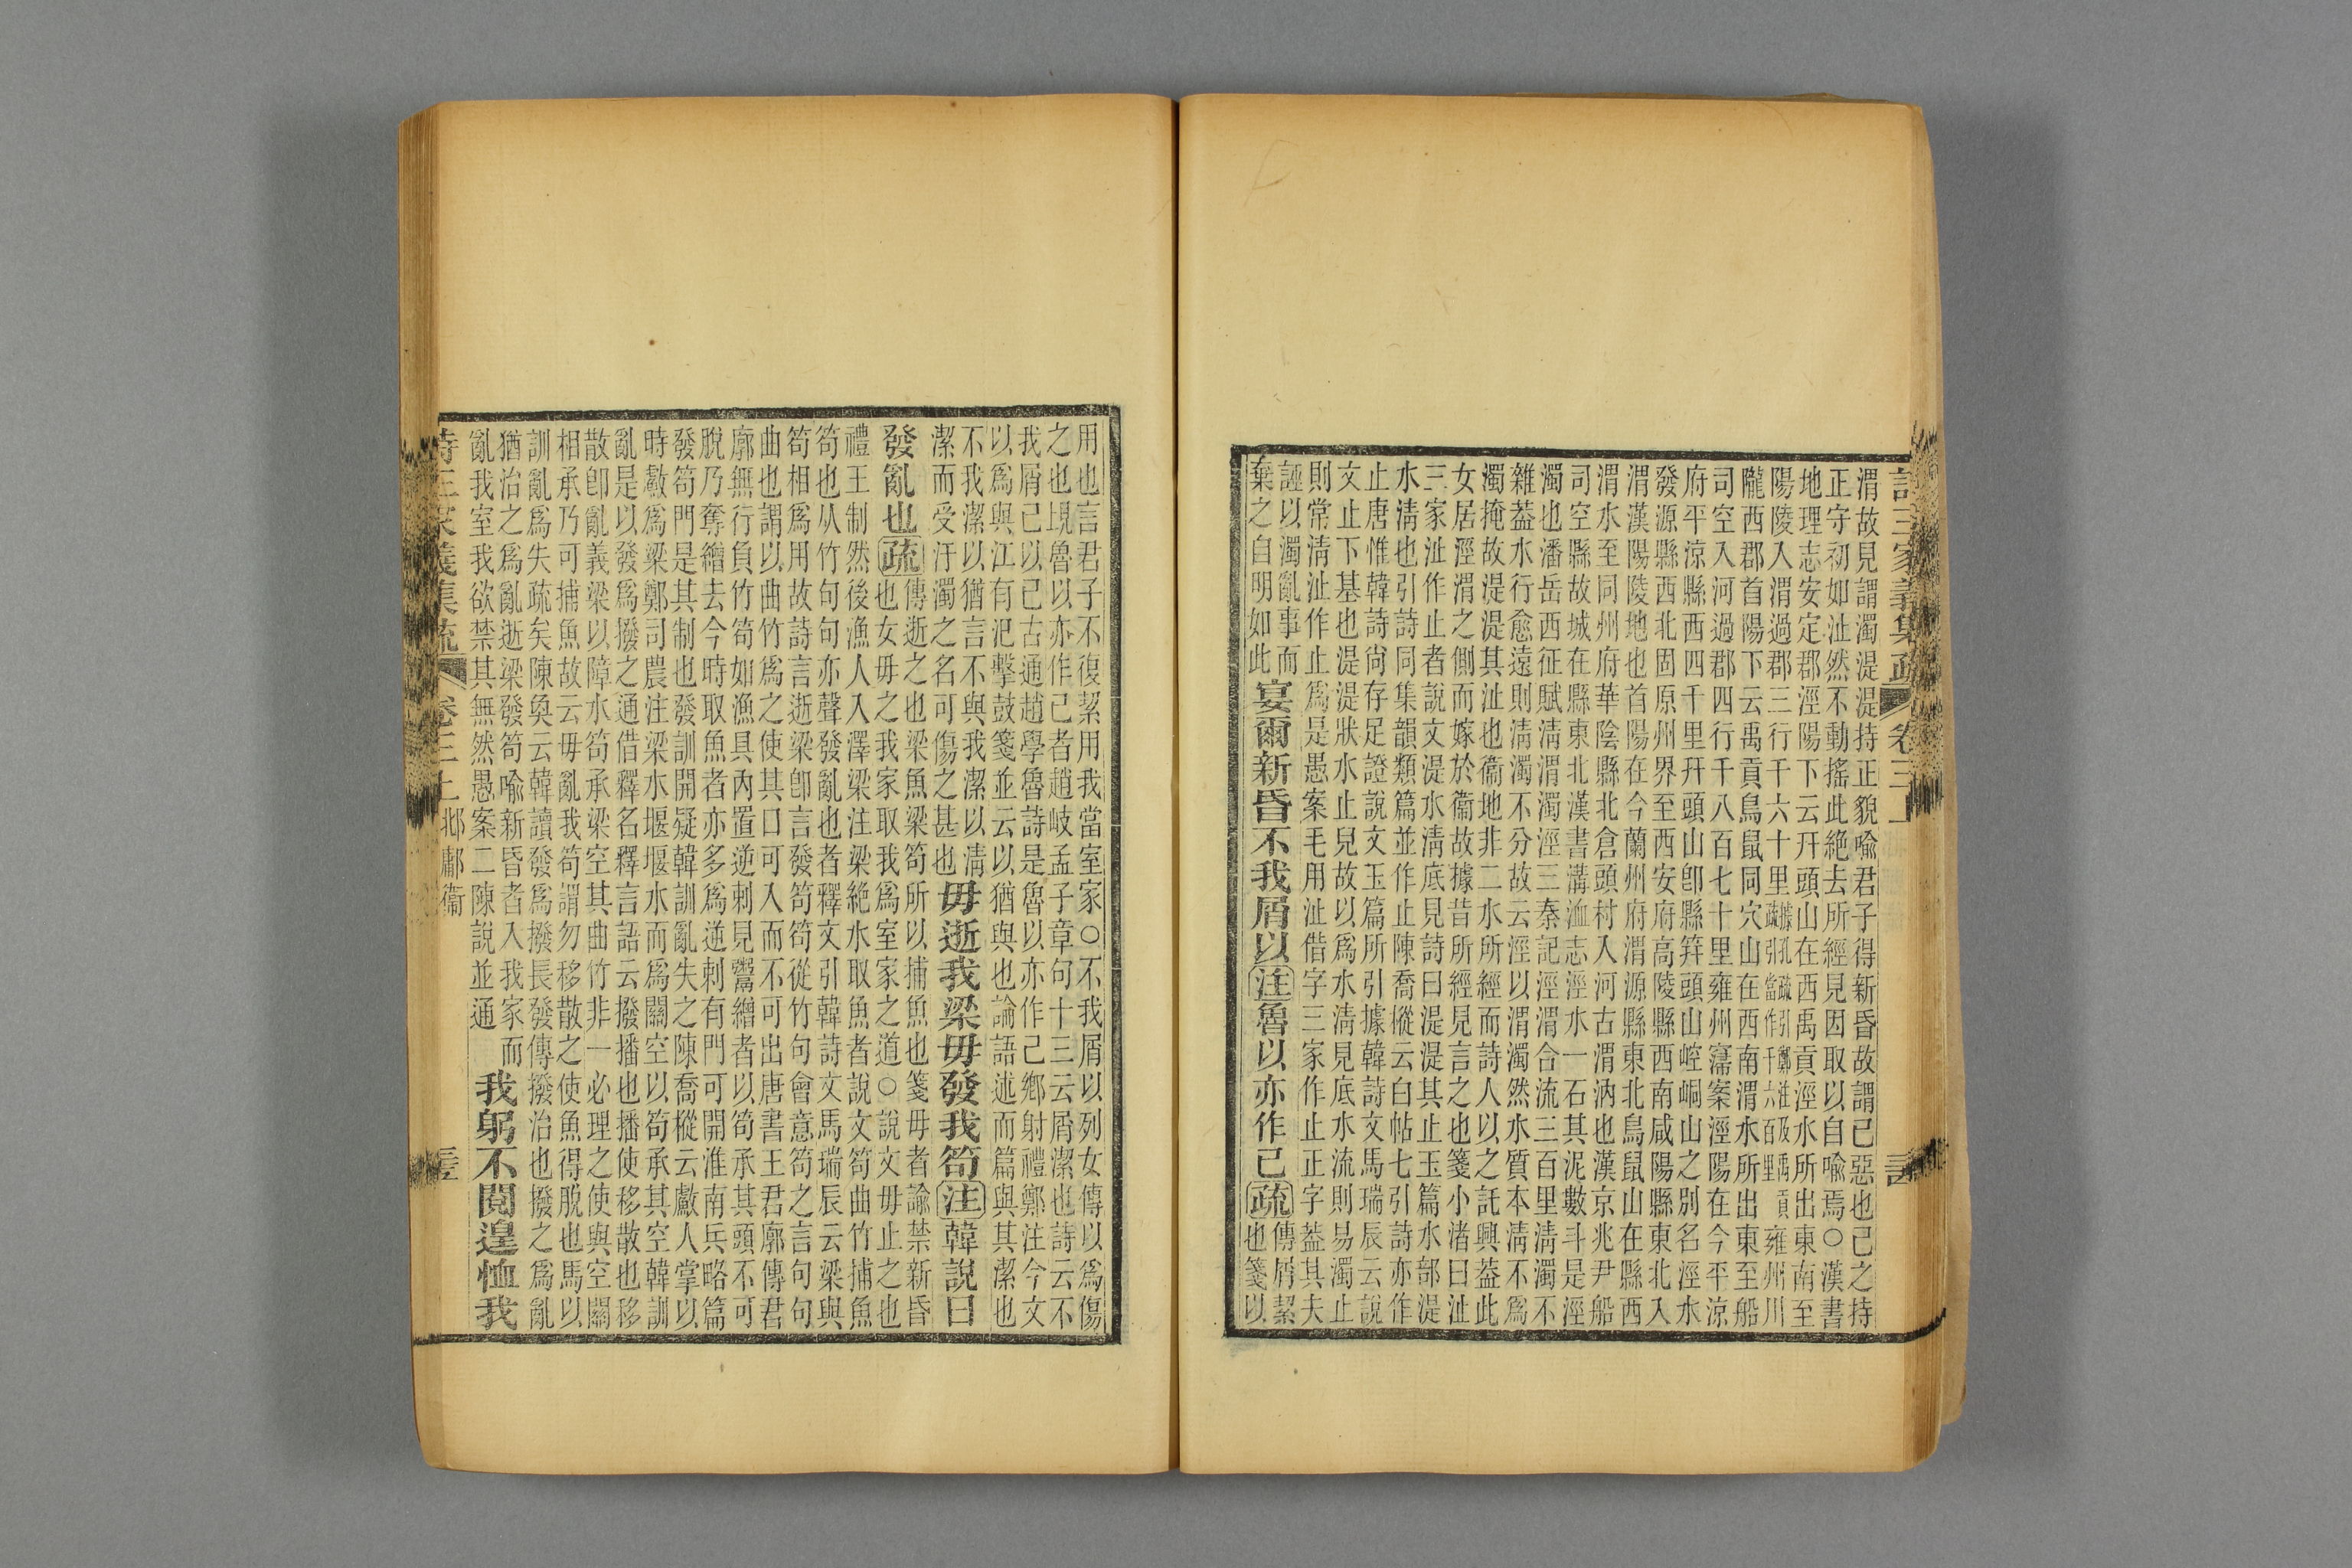 詩三家義集疏 卷三上
渭故見謂濁湜湜持正貌喩君子得新昏故謂己惡也己之持
正守初如沚然不動搖此絶去所經見因取以自喩焉○漢書
地理志安定郡涇陽下云幵頭山在西禹貢涇水所出東南至
陽陵入渭過郡三行千六十里據孔疏引鄭注及禹貢疏引當作千六百里雍州川
隴西郡首陽下云禹貢鳥鼠同穴山在西南渭水所出東至船
司空入河過郡四行千八百七十里雍州寖案涇陽在今平涼
府平涼縣西四千里幵頭山卽縣筓頭山崆峒山之別名涇水
發源縣西北固原州界至西安府高陵縣西南咸陽縣東北入
渭漢陽陵地也首陽在今蘭州府渭源縣東北鳥鼠山在縣西
渭水至同州府華陰縣北倉頭村入河古渭汭也漢京兆尹船
司空縣故城在縣東北漢書溝洫志涇水一石其泥數斗是涇
濁也潘岳西征賦清渭濁涇三秦記涇渭合流三百里清濁不
雜葢水行愈遠則清濁不分故云涇以渭濁然水質本清不爲
濁掩故湜湜其沚也衞地非二水所經而詩人以之託興葢此
女居涇渭之側而嫁於衞故據昔所經見言之也箋小渚曰沚
三家沚作止者說文湜水清底見詩曰湜湜其止玉篇水部湜
水清也引詩同集韻類篇並作止陳喬樅云白帖七引詩亦作
止唐惟韓詩尚存足證說文玉篇所引據韓詩文馬瑞辰云說
文止下基也湜湜狀水止皃故以爲水清見底水流則易濁止
則常清沚作止爲是愚案毛用沚借字三家作止正字葢其夫
誣以濁亂事而
棄之自明如此
宴爾新昏不我屑以注魯以亦作己疏
傳屑絜
也箋以
用也言君子不復絜用我當室家○不我屑以列女傳以爲傷
之也堄魯以亦作己者趙岐孟子章句十三云屑潔也詩云不
我屑己以己古通趙學魯詩是魯以亦作己鄉射禮鄭注今文
以爲與江有汜擊鼓箋並云以猶與也論語述而篇與其潔也
不我潔以猶言不與我潔以清
潔而受汙濁之名可傷之甚也
毋逝我梁毋發我笱注韓說曰
發亂也疏
傳逝之也梁魚梁笱所以捕魚也箋毋者諭禁新昏
也女毋之我家取我爲室家之道○說文毋止之也
禮王制然後漁人入澤梁注梁絶水取魚者說文笱曲竹捕魚
笱也从竹句句亦聲發亂也者釋文引韓詩文馬瑞辰云梁與
笱相爲用故詩言逝梁卽言發笱笱從竹句會意笱之言句句
曲也謂以曲竹爲之使其口可入而不可出唐書王君廓傳君
廓無行負竹笱如漁具內置逆刺見鬻繒者以笱承其頭不可
脫乃奪繒去今時取魚者亦多爲逆刺有門可開淮南兵略篇
發笱門是其制也發訓開疑韓訓亂失之陳喬樅云䱷人掌以
時䱷爲梁鄭司農注梁水堰堰水而爲關空以笱承其空韓訓
亂是以發爲撥之通借釋名釋言語云撥播也播使移散也移
散卽亂義梁以障水笱承梁空其曲竹非一必理之使與空關
相承乃可捕魚故云毋亂我笱謂勿移散之使魚得脫也馬以
訓亂爲失疏矣陳奐云韓讀發爲撥長發傳撥治也撥之爲亂
猶治之爲亂逝梁發笱喩新昏者入我家而
亂我室我欲禁其無然愚案二陳說並通
我躬不閱遑恤我
詩三家義集疏 卷三上 邶鄘衞